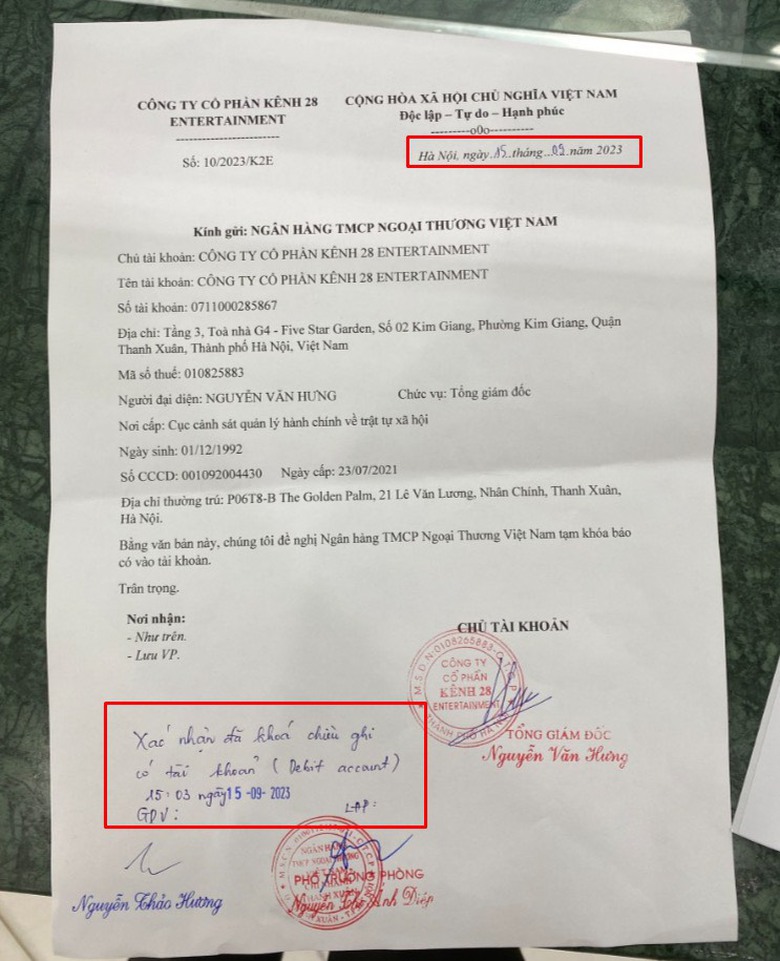 CÔNG TY CỔ PHẦN KÊNH 28
ENTERTAINMENT
CỘNG HÒA XÃ HỘI CHỦ NGHĨA VIỆT NAM
Độc lập – Tự do – Hạnh phúc
---------o0o----------
Số: 10/2023/K2E
Hà Nội, ngày.15..tháng...09.năm 2023
Kính gửi: NGÂN HÀNG TMCP NGOẠI THƯƠNG VIỆT NAM
Chủ tài khoản: CÔNG TY CỔ PHẦN KÊNH 28 ENTERTAINMENT
Tên tài khoản: CÔNG TY CỔ PHẦN KÊNH 28 ENTERTAINMENT
Số tài khoản: 0711000285867
Địa chỉ: Tầng 3, Toà nhà G4 - Five Star Garden, Số 02 Kim Giang, Phường Kim Giang, Quận
Thanh Xuân, Thành phố Hà Nội, Việt Nam
Mã số thuế: 010825883
Người đại diện: NGUYỄN VĂN HƯNG Chức vụ: Tổng giám đốc
Nơi cấp: Cục cảnh sát quản lý hành chính về trật tự xã hội
Ngày sinh: 01/12/1992
Số CCCD: 001092004430 Ngày cấp: 23/07/2021
Địa chỉ thường trú: P06T8-B The Golden Palm, 21 Lê Văn Lương, Nhân Chính, Thanh Xuân,
Hà Nội.
Bằng văn bản này, chúng tôi đề nghị Ngân hàng TMCP Ngoại Thương Việt Nam tạm khóa báo
có vào tài khoản.
Trân trọng.
Nơi nhận:
- Như trên.
- Lưu VP.
CHỦ TÀI KHOẢN
M.S.D.N:0108265883-C.T.C.P
CÔNG TY
CỔ PHẦN
KÊNH 28
ENTERTAINMENT
THÀNH PHỐ HÀ NỘI
TỔNG GIÁM ĐỐC
Nguyễn Văn Hưng
Xác nhận đã khoá chiều ghi
có tài khoản (Debit account)
15:03 ngày 15-09-2023
GDV:
NGÂN HÀNG
TMCP NGOẠI THƯƠNG
THANH XUÂN
PHÓ TRƯỞNG PHÒNG
Nguyễn Thảo Hương